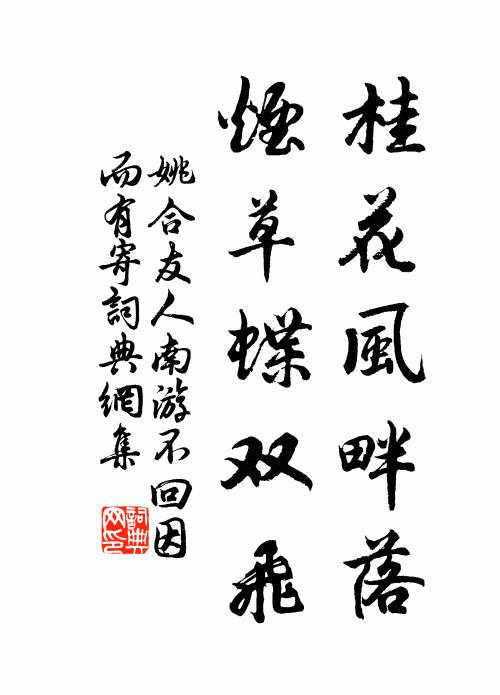 桂花風畔落
煙草蝶双飛
姚合友人南游不回因
而有寄詞典網集
詞典
网印